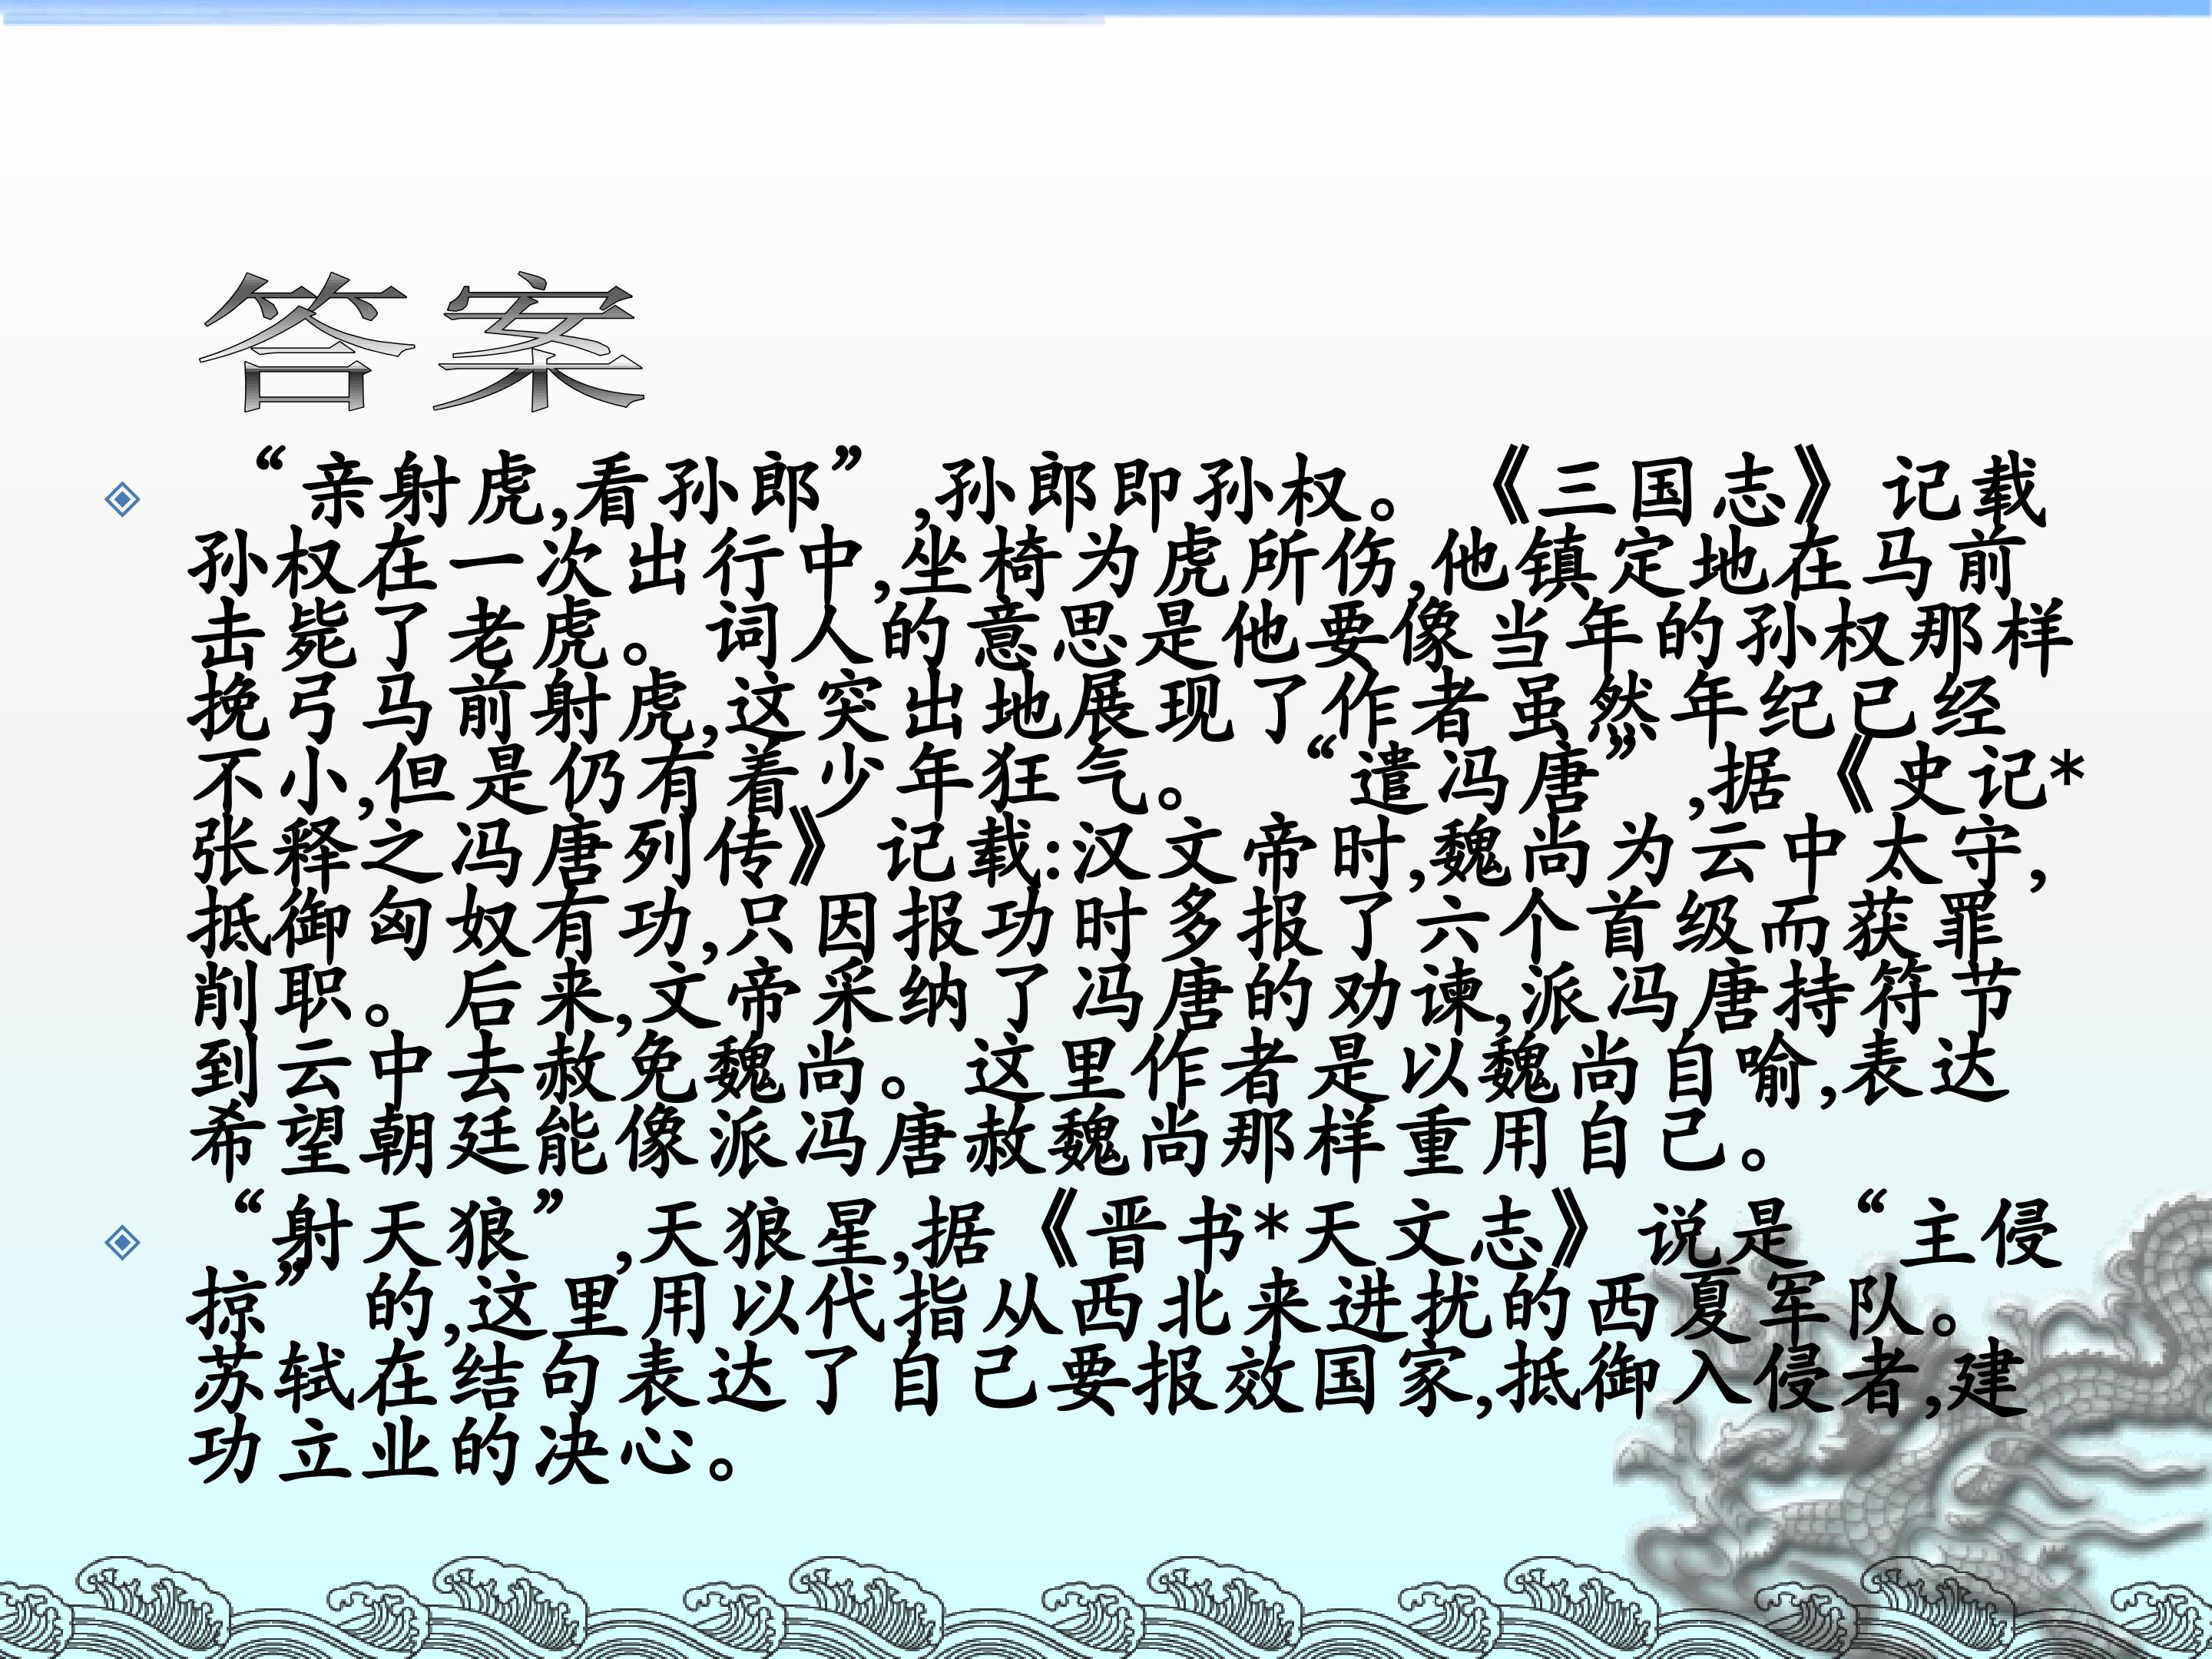 答案
“亲射虎,看孙郎”,孙郎即孙权。《三国志》记载
孙权在一次出行中,坐椅为虎所伤,他镇定地在马前
击毙了老虎。词人的意思是他要像当年的孙权那样
挽弓马前射虎,这突出地展现了作者虽然年纪已经
不小,但是仍有着少年狂气。“遣冯唐”,据《史记*
张释之冯唐列传》记载:汉文帝时,魏尚为云中太守,
抵御匈奴有功,只因报功时多报了六个首级而获罪
削职。后来,文帝采纳了冯唐的劝谏,派冯唐持符节
到云中去赦免魏尚。这里作者是以魏尚自喻,表达
希望朝廷能像派冯唐赦魏尚那样重用自己。
“射天狼”,天狼星,据《晋书*天文志》说是“主侵
掠”的,这里用以代指从西北来进扰的西夏军队。
苏轼在结句表达了自己要报效国家,抵御入侵者,建
功立业的决心。